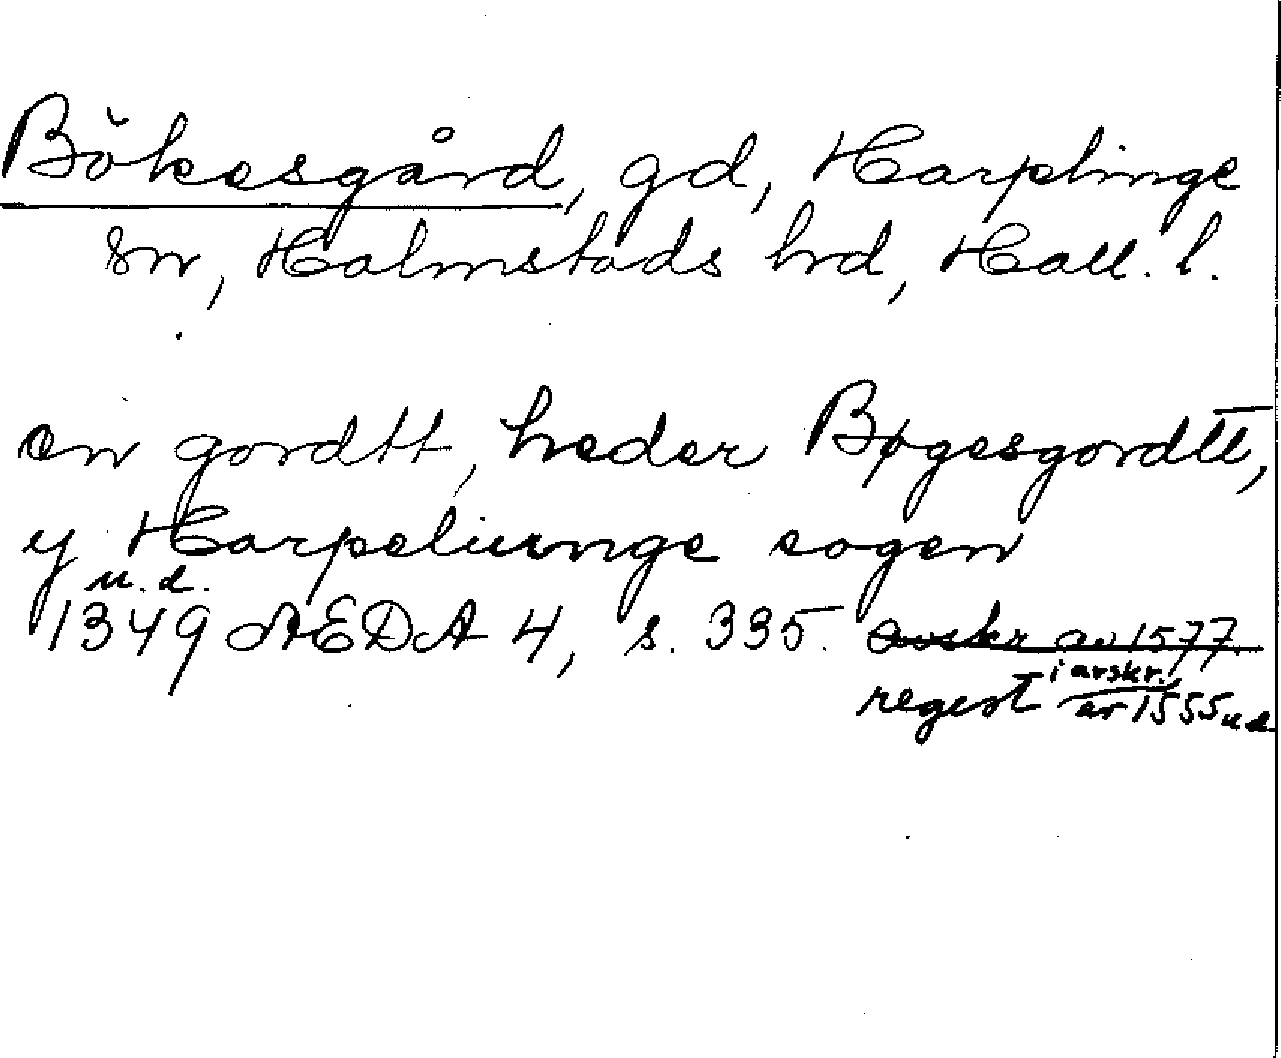 Bökesgård, gd, Harplinge
sn, Halmstads hrd, Hall. l.
en gordtt, heder Bøgesgordtt,
y Harpeliunge sogen
u.d.
1349 ÆDA 4, s. 335. avskr av 1577.
i avskr.
regest av 1555 u d